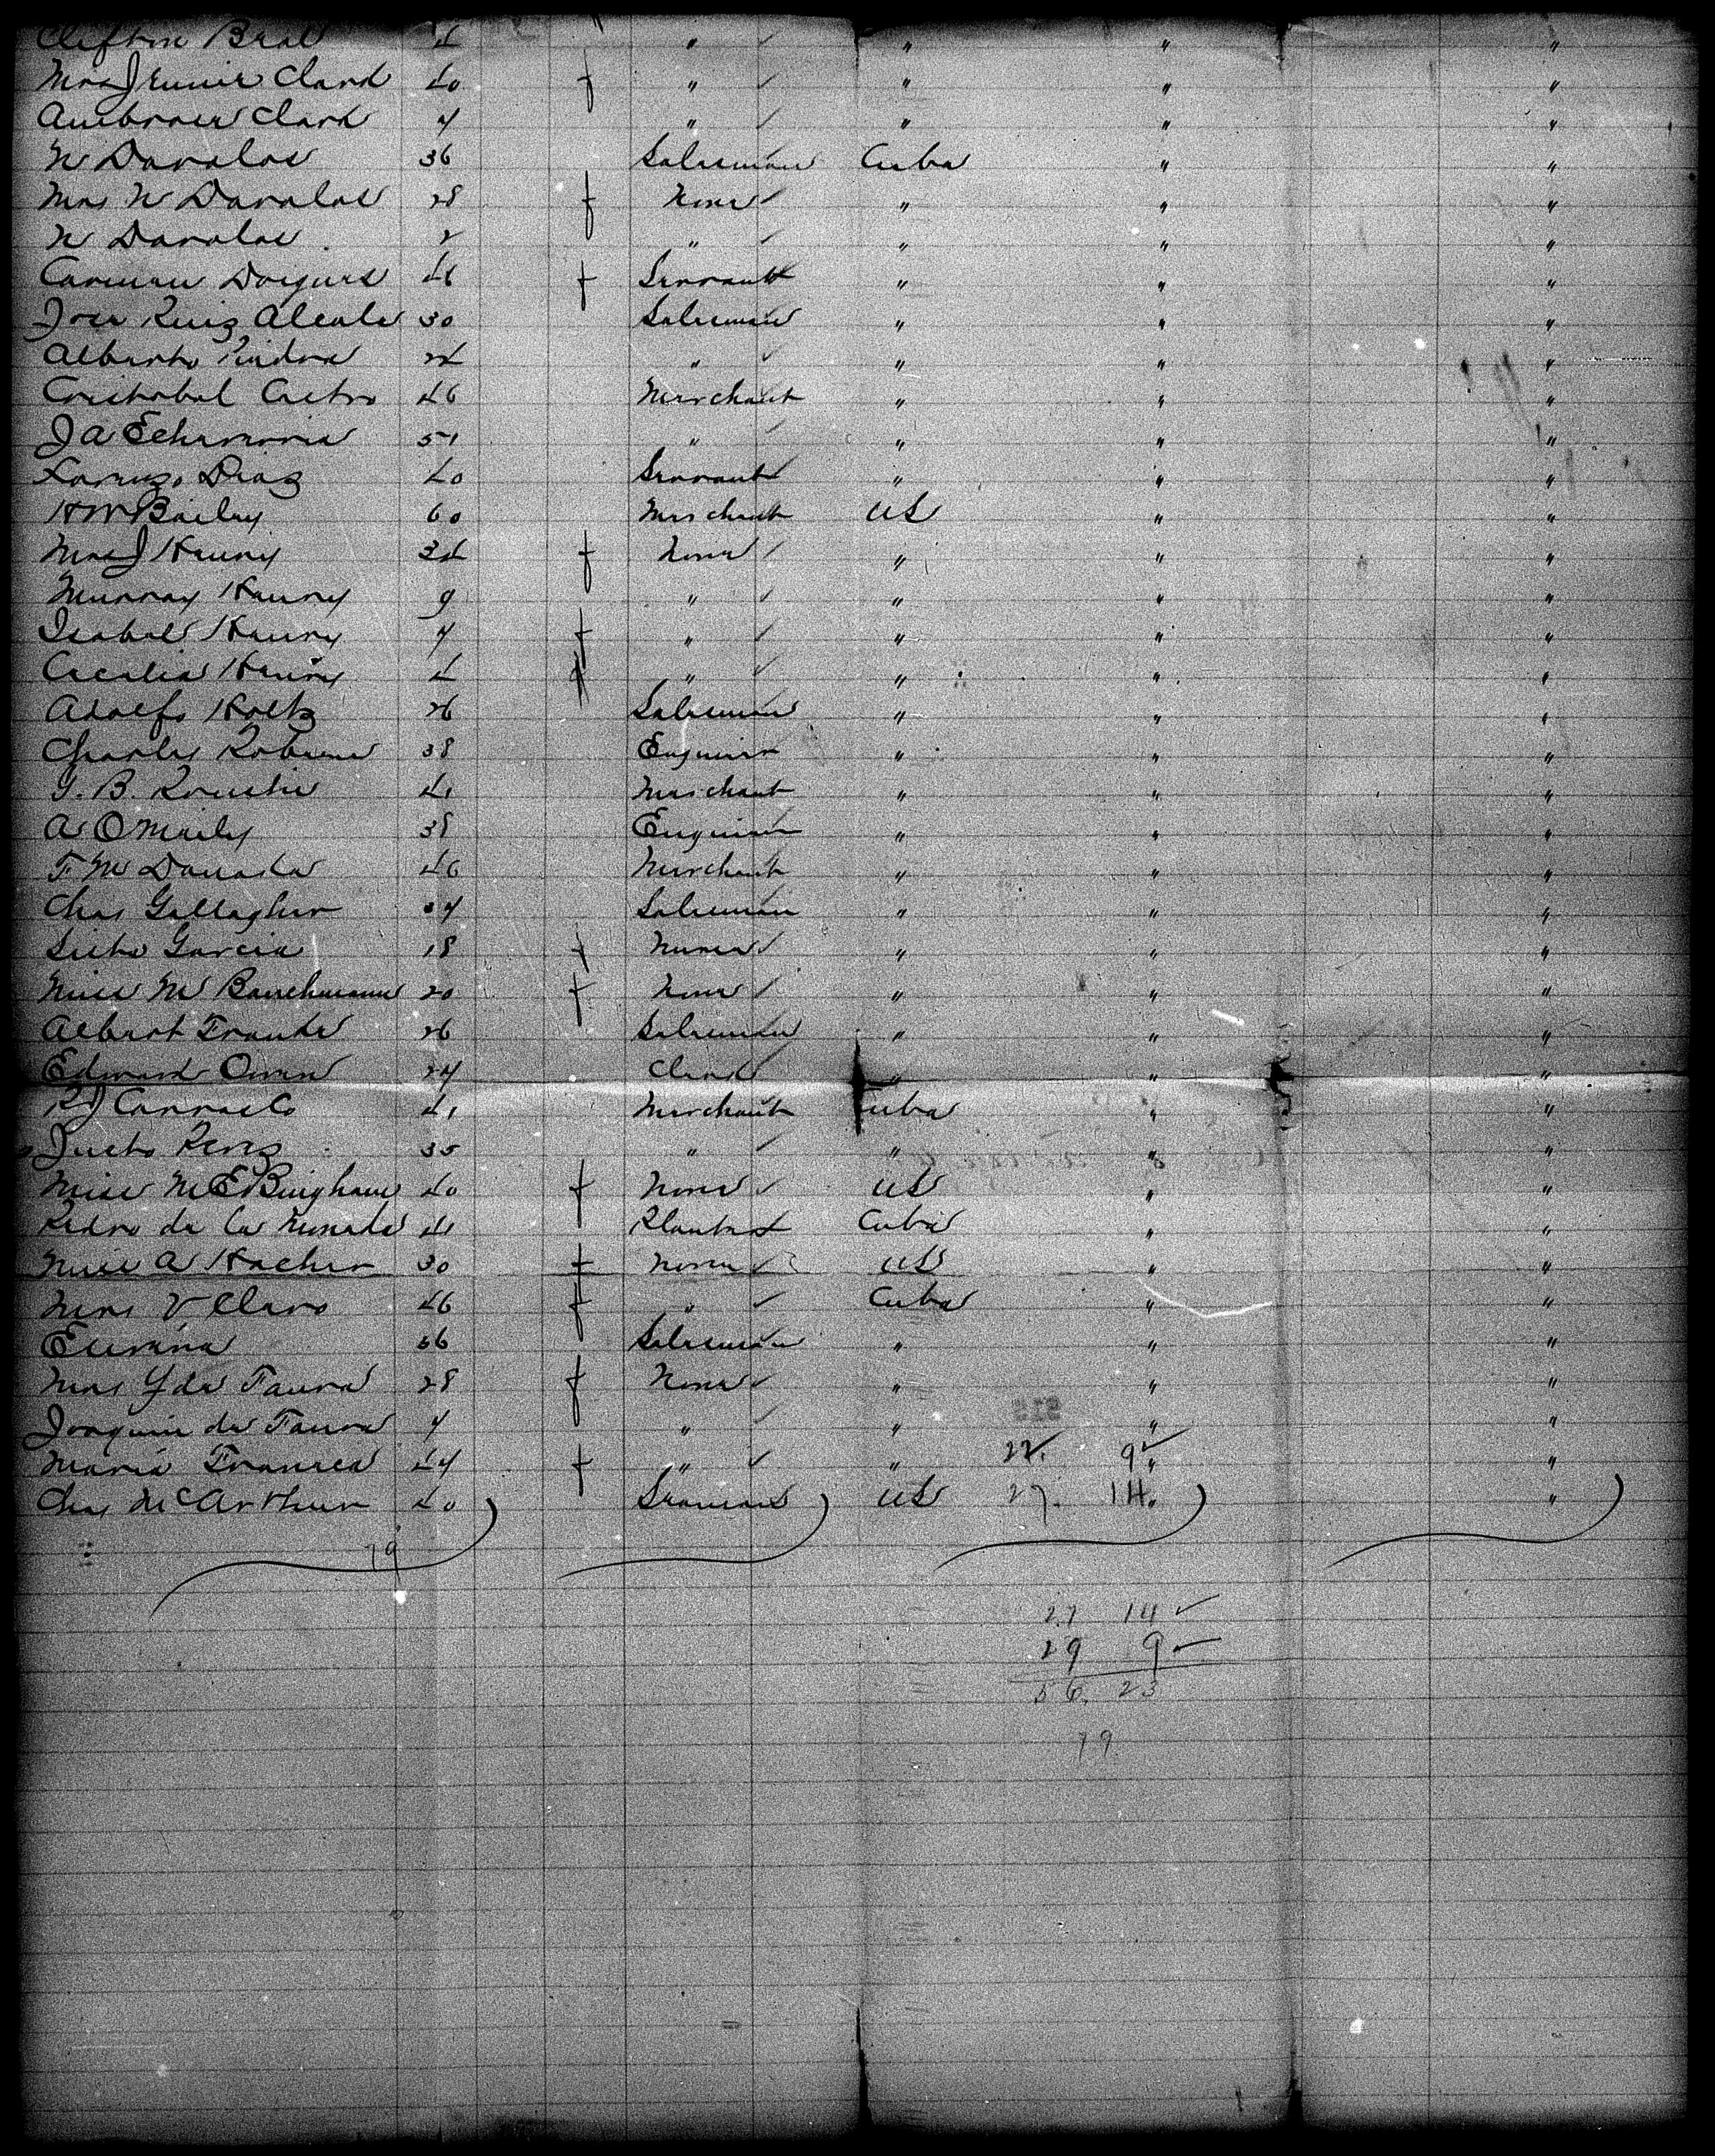 Clifton Beal 4 " " " "
Mrs Jennie Clark 40 f " " " "
Ambrose Clark 7 " " " "
N Davalos 36 Salesman Cuba " "
Mrs N Davalos 28 f None " " "
N Davalos 2 " " " "
Carman 46 f Servant " " "
Jose Ruiz Alcala 30 Salesman " " "
Alberto 24 " " " "
Cristobal Castro 46 Merchant " " "
J A Echavarria 51 " " " "
Lorenzo Diaz 40 Servant " " "
H W Bailey 60 Merchant US " "
Mrs J Henry 34 f None " " "
Murray Henry 9 " " " "
Isabel Henry 7 f " " " "
Cecelia Henry 4 f " " " "
Adolfo Holtz 26 Salesman " " "
Charles 38 Engineer " " "
G. B. 41 Merchant " " "
A O'Maily 38 Engineer " " "
F M 46 Merchant " " "
Chas Gallagher 37 Salesman " " "
Garcia 18 f Nurse " " "
Miss M 20 f None " " "
Albert Franke 26 Salesman " " "
Edward Owen 27 Clerk " " "
R J 41 Merchant Cuba " "
Justo Perez 35 " " " "
Miss M E Bingham 40 f None US " "
Pedro de la 41 Planter Cuba " "
Miss A 30 f None US " "
Mrs V Claro 46 f " Cuba " "
36 Salesman " " "
Mrs Y de Faura 28 f None " " "
Joaquin de Faura 7 " " " "
Maria 47 f " " 9 " "
Chas McArthur 40 US 27. 14. "
79
27 14
29 9
56. 23
79